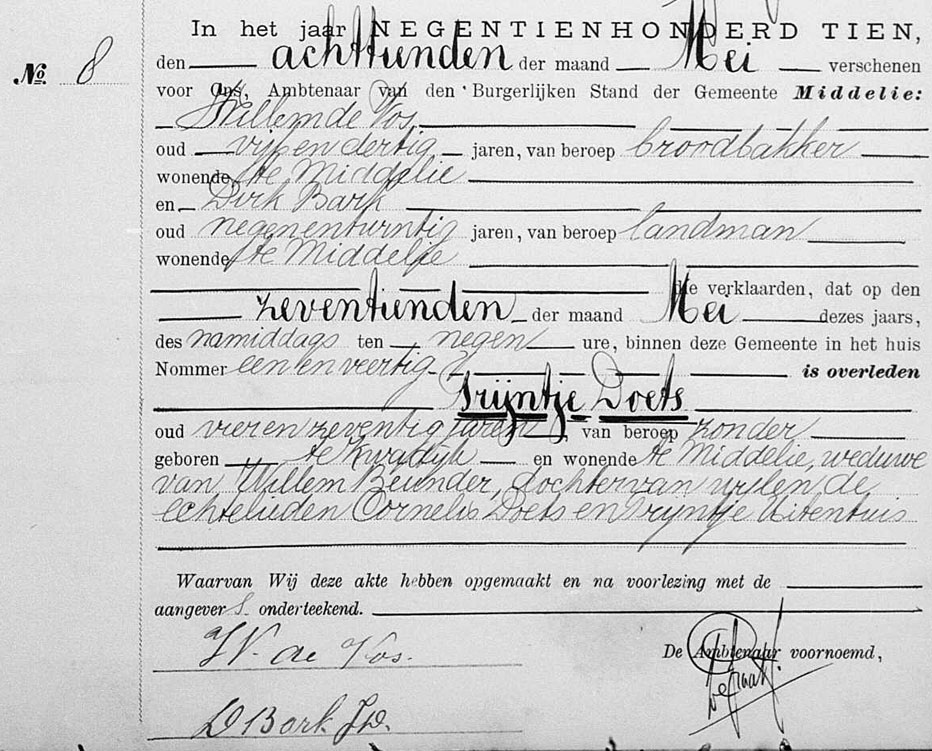 In het jaar NEGENTIENHONDERD TIEN,
№ 8
den achttienden der maand Mei verschenen
voor Ons, Ambtenaar van den Burgerlijken Stand der Gemeente Middelie:
Willem de Vos,
oud vijf en dertig jaren, van beroep broodbakker
wonende te Middelie
en Dirk Bark
oud negenentwintig jaren, van beroep landman
wonende te Middelie
die verklaarden, dat op den
zeventienden der maand Mei dezes jaars,
des namiddags ten negen ure, binnen deze Gemeente in het huis
Nommer een en veertig is overleden
Trijntje Doets
oud vier en zeventig jaren, van beroep zonder
geboren te Kwadijk en wonende te Middelie, weduwe
van Willem Beunder, dochter van wijlen de
echtelieden Cornelis Doets en Trijntje Uitentuis
Waarvan Wij deze akte hebben opgemaakt en na voorlezing met de
aangevers onderteekend.
W. de Vos.
De Ambtenaar voornoemd,
D Bark